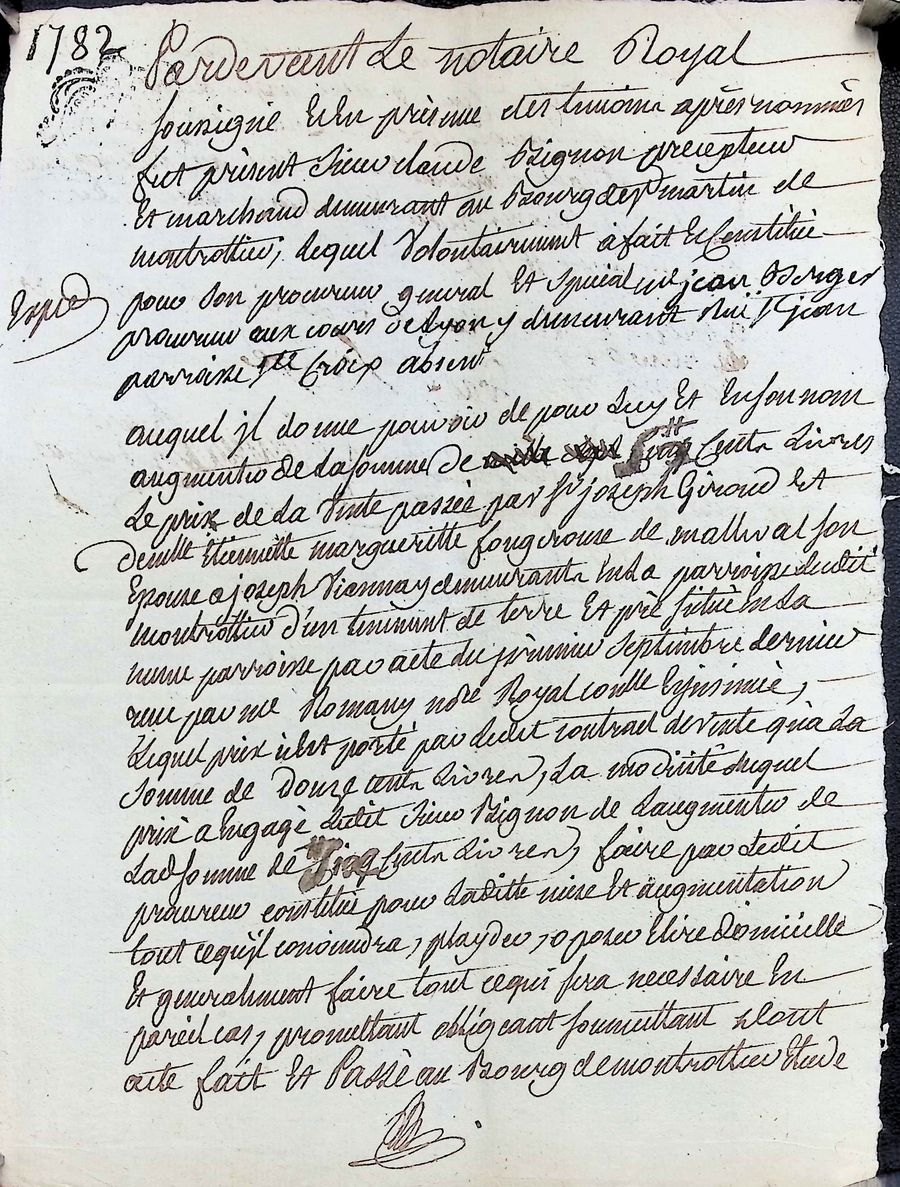 1782
Pardevant Le notaire Royal
soussigné Et En présence des temoins après nommés
fut présent Sieur claude Bignon precepteur
Et marchand demeurant au Bourg de st martin de
montrottier, lequel Volontairement à fait Et Constitué
pour son procureur general Et spécial me jean Berger
procureur aux cours de Lyon y demeurant rüe St jean
parroisse ste Croix absent
Expié
auquel jl donne pouvoir de pour Luy Et En son nom
augmenter de la somme de Cinq Cents Livres
Le prix de la Vente passée par Sr joseph Giroud Et
demlle Etiennette margueritte fougerouse de malleval son
Epouse a joseph Viannay demeurants En La parroisse dudit
montrottier d'un tenement de terre Et pré situé En La
meme parroisse par acte du premier Septembre dernier
reçu par me Romany nore Royal controllé Et jnsinué,
Lequel prix n'est porté par Ledit contract de vente qu'a La
somme de Douze cents Livres, La modicité duquel
prix a Engagé Ledit Sieur Bignon de Laugmenter de
Lad somme de Cinq Cents Livres, faire par Ledit
procureur constitué pour Laditte mise Et augmentation
tout ce qu'jl conviendra, playder, oposer Elire Domicille
Et generalement faire tout ce qui sera necessaire En
pareil cas, promettant obligeant soumettant Dont
acte fait Et Passé au Bourg de montrottier Etude